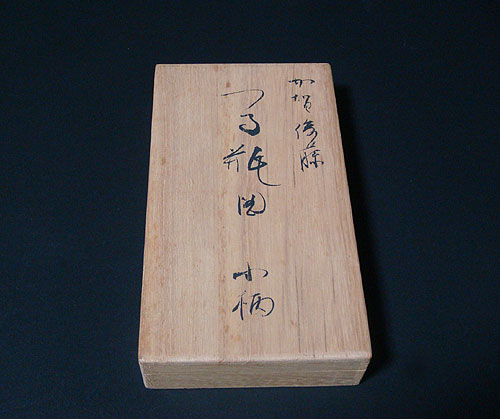 加賀後藤
つる瓶図 小柄